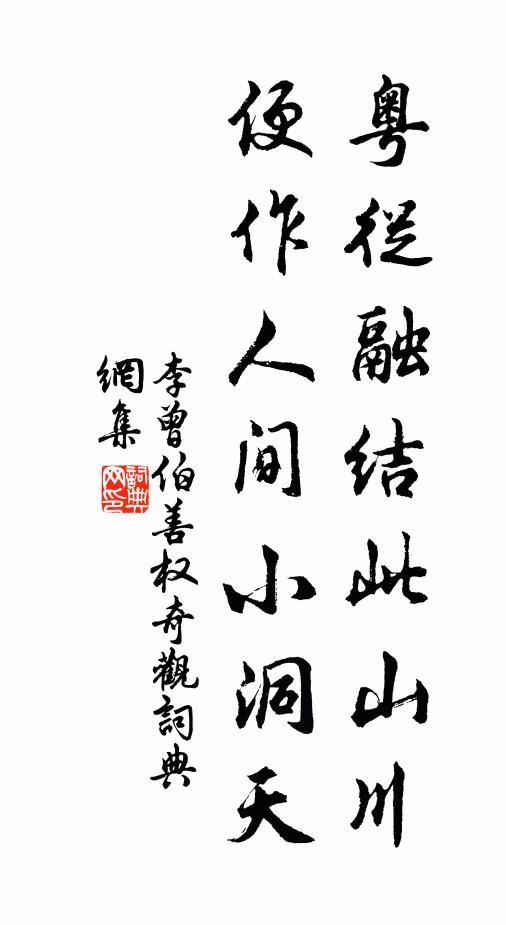 粤從融結此山川
便作人间小洞天
李曾伯善权奇觀詞典
網集
詞典
网印